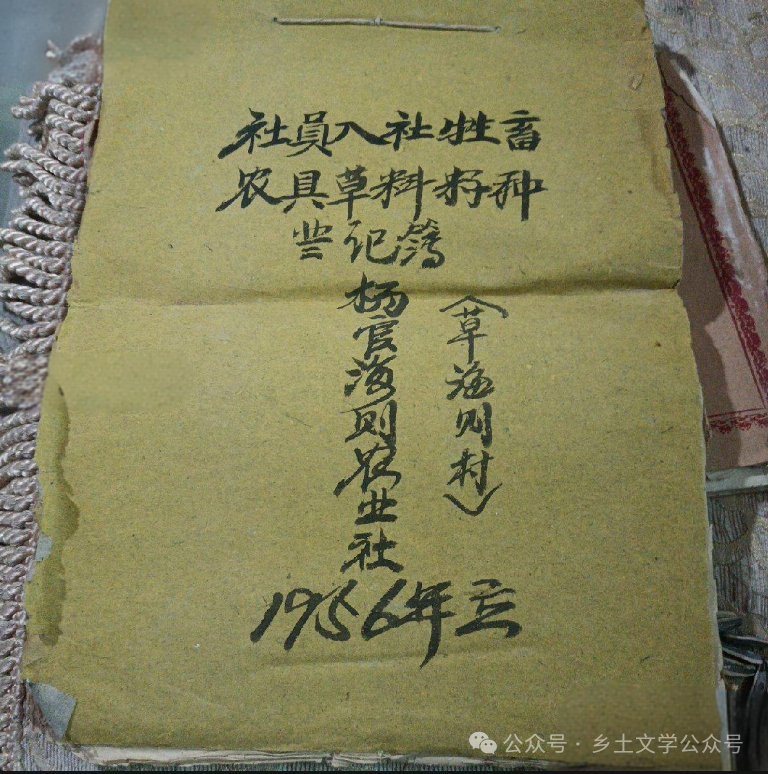 社員入社牲畜
农具草料籽种
登记簿
杨官海则农业社
（草海则村）
1956年立
公众号·乡土文学公众号